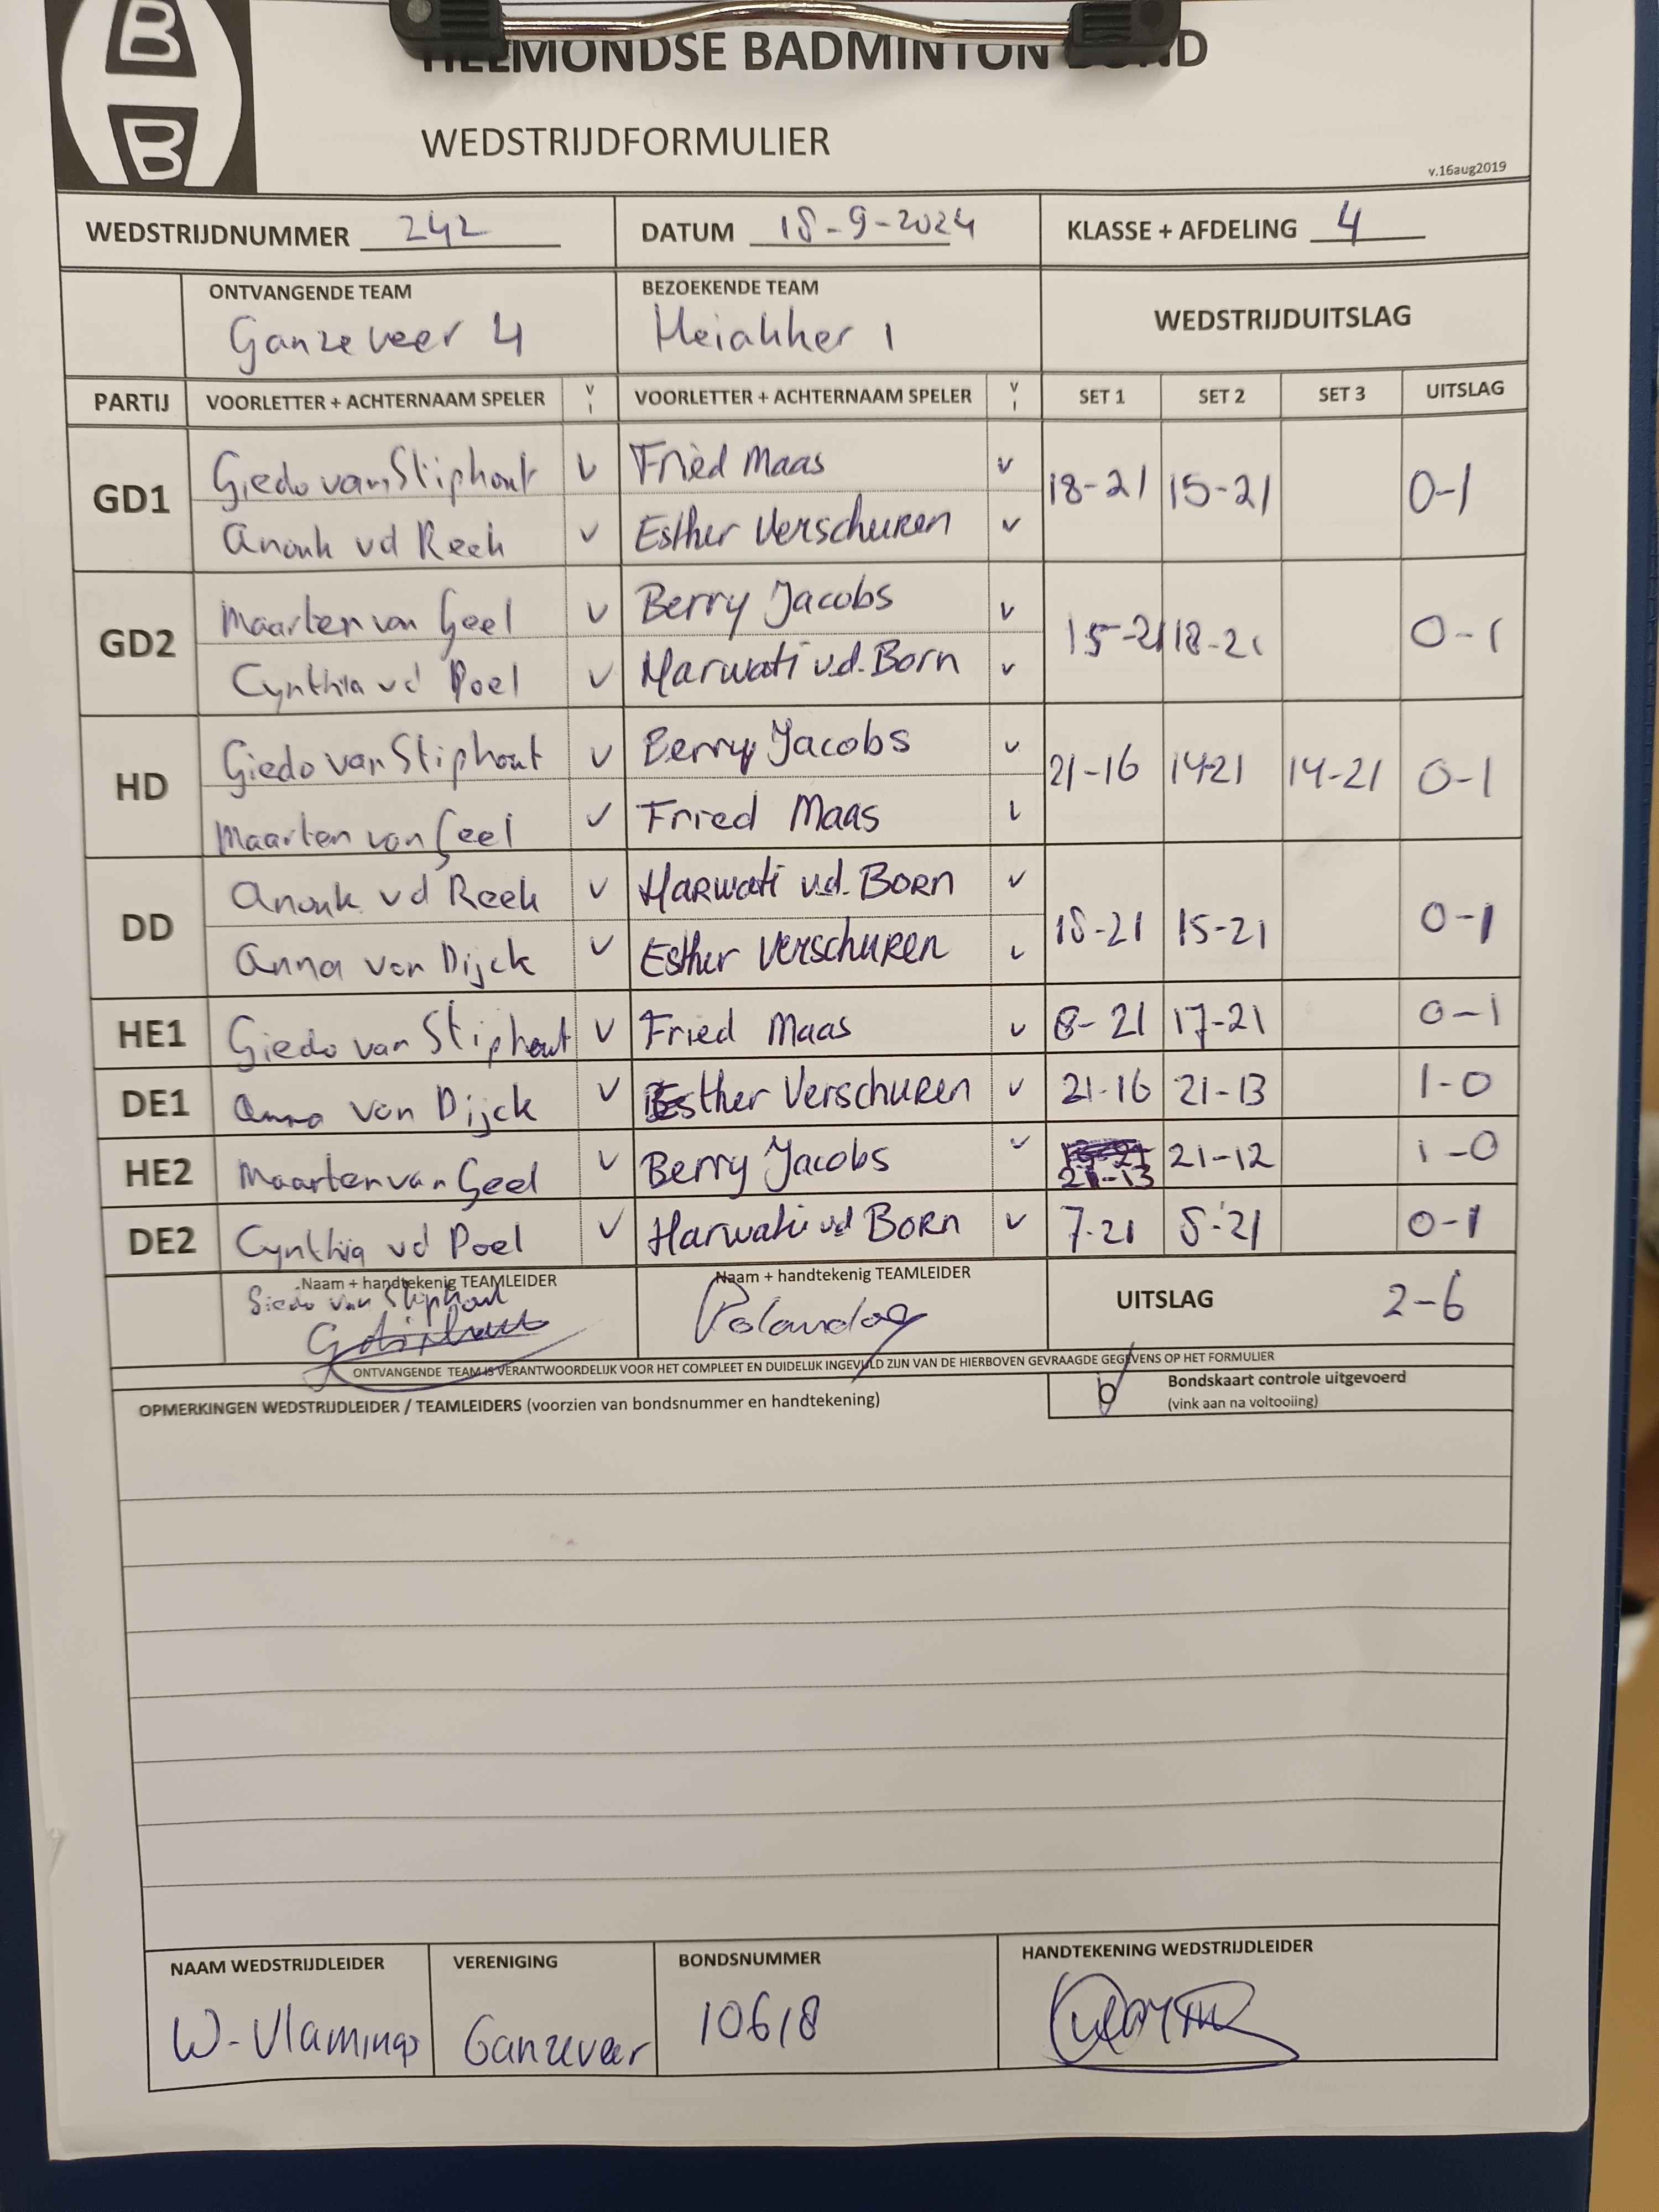 B
B
HELMONDSE BADMINTON BOND
WEDSTRIJDFORMULIER
v.16aug2019
WEDSTRIJDNUMMER 242 DATUM 18-9-2024 KLASSE + AFDELING 4
ONTVANGENDE TEAM BEZOEKENDE TEAM WEDSTRIJDUITSLAG
Ganzeveer 4 Heiakker 1
PARTIJ VOORLETTER + ACHTERNAAM SPELER V I VOORLETTER + ACHTERNAAM SPELER V I SET 1 SET 2 SET 3 UITSLAG
GD1 Giedo van Stiphout v Fried Maas v 18-21 15-21 0-1
Anouk vd Reek v Esther Verschuren v
GD2 Maarten van Geel v Berry Jacobs v 15-21 18-21 0-1
Cynthia vd Poel v Harwati v.d. Born v
HD Giedo van Stiphout v Berry Jacobs v 21-16 14-21 14-21 0-1
Maarten van Geel v Fried Maas v
DD Anouk vd Reek v Harwati v.d. Born v 18-21 15-21 0-1
Anna van Dijck v Esther Verschuren v
HE1 Giedo van Stiphout v Fried Maas v 8-21 17-21 0-1
DE1 Anna van Dijck v Esther Verschuren v 21-16 21-13 1-0
HE2 Maarten van Geel v Berry Jacobs v 21-13 21-12 1-0
DE2 Cynthia vd Poel v Harwati vd Born v 7-21 8-21 0-1
Naam + handtekenig TEAMLEIDER Naam + handtekenig TEAMLEIDER UITSLAG 2-6
Giedo van Stiphout
ONTVANGENDE TEAM IS VERANTWOORDELIJK VOOR HET COMPLEET EN DUIDELIJK INGEVULD ZIJN VAN DE HIERBOVEN GEVRAAGDE GEGEVENS OP HET FORMULIER
OPMERKINGEN WEDSTRIJDLEIDER / TEAMLEIDERS (voorzien van bondsnummer en handtekening)
Bondskaart controle uitgevoerd
(vink aan na voltooiing)
NAAM WEDSTRIJDLEIDER VERENIGING BONDSNUMMER HANDTEKENING WEDSTRIJDLEIDER
W-Vlamings Ganzeveer 10618